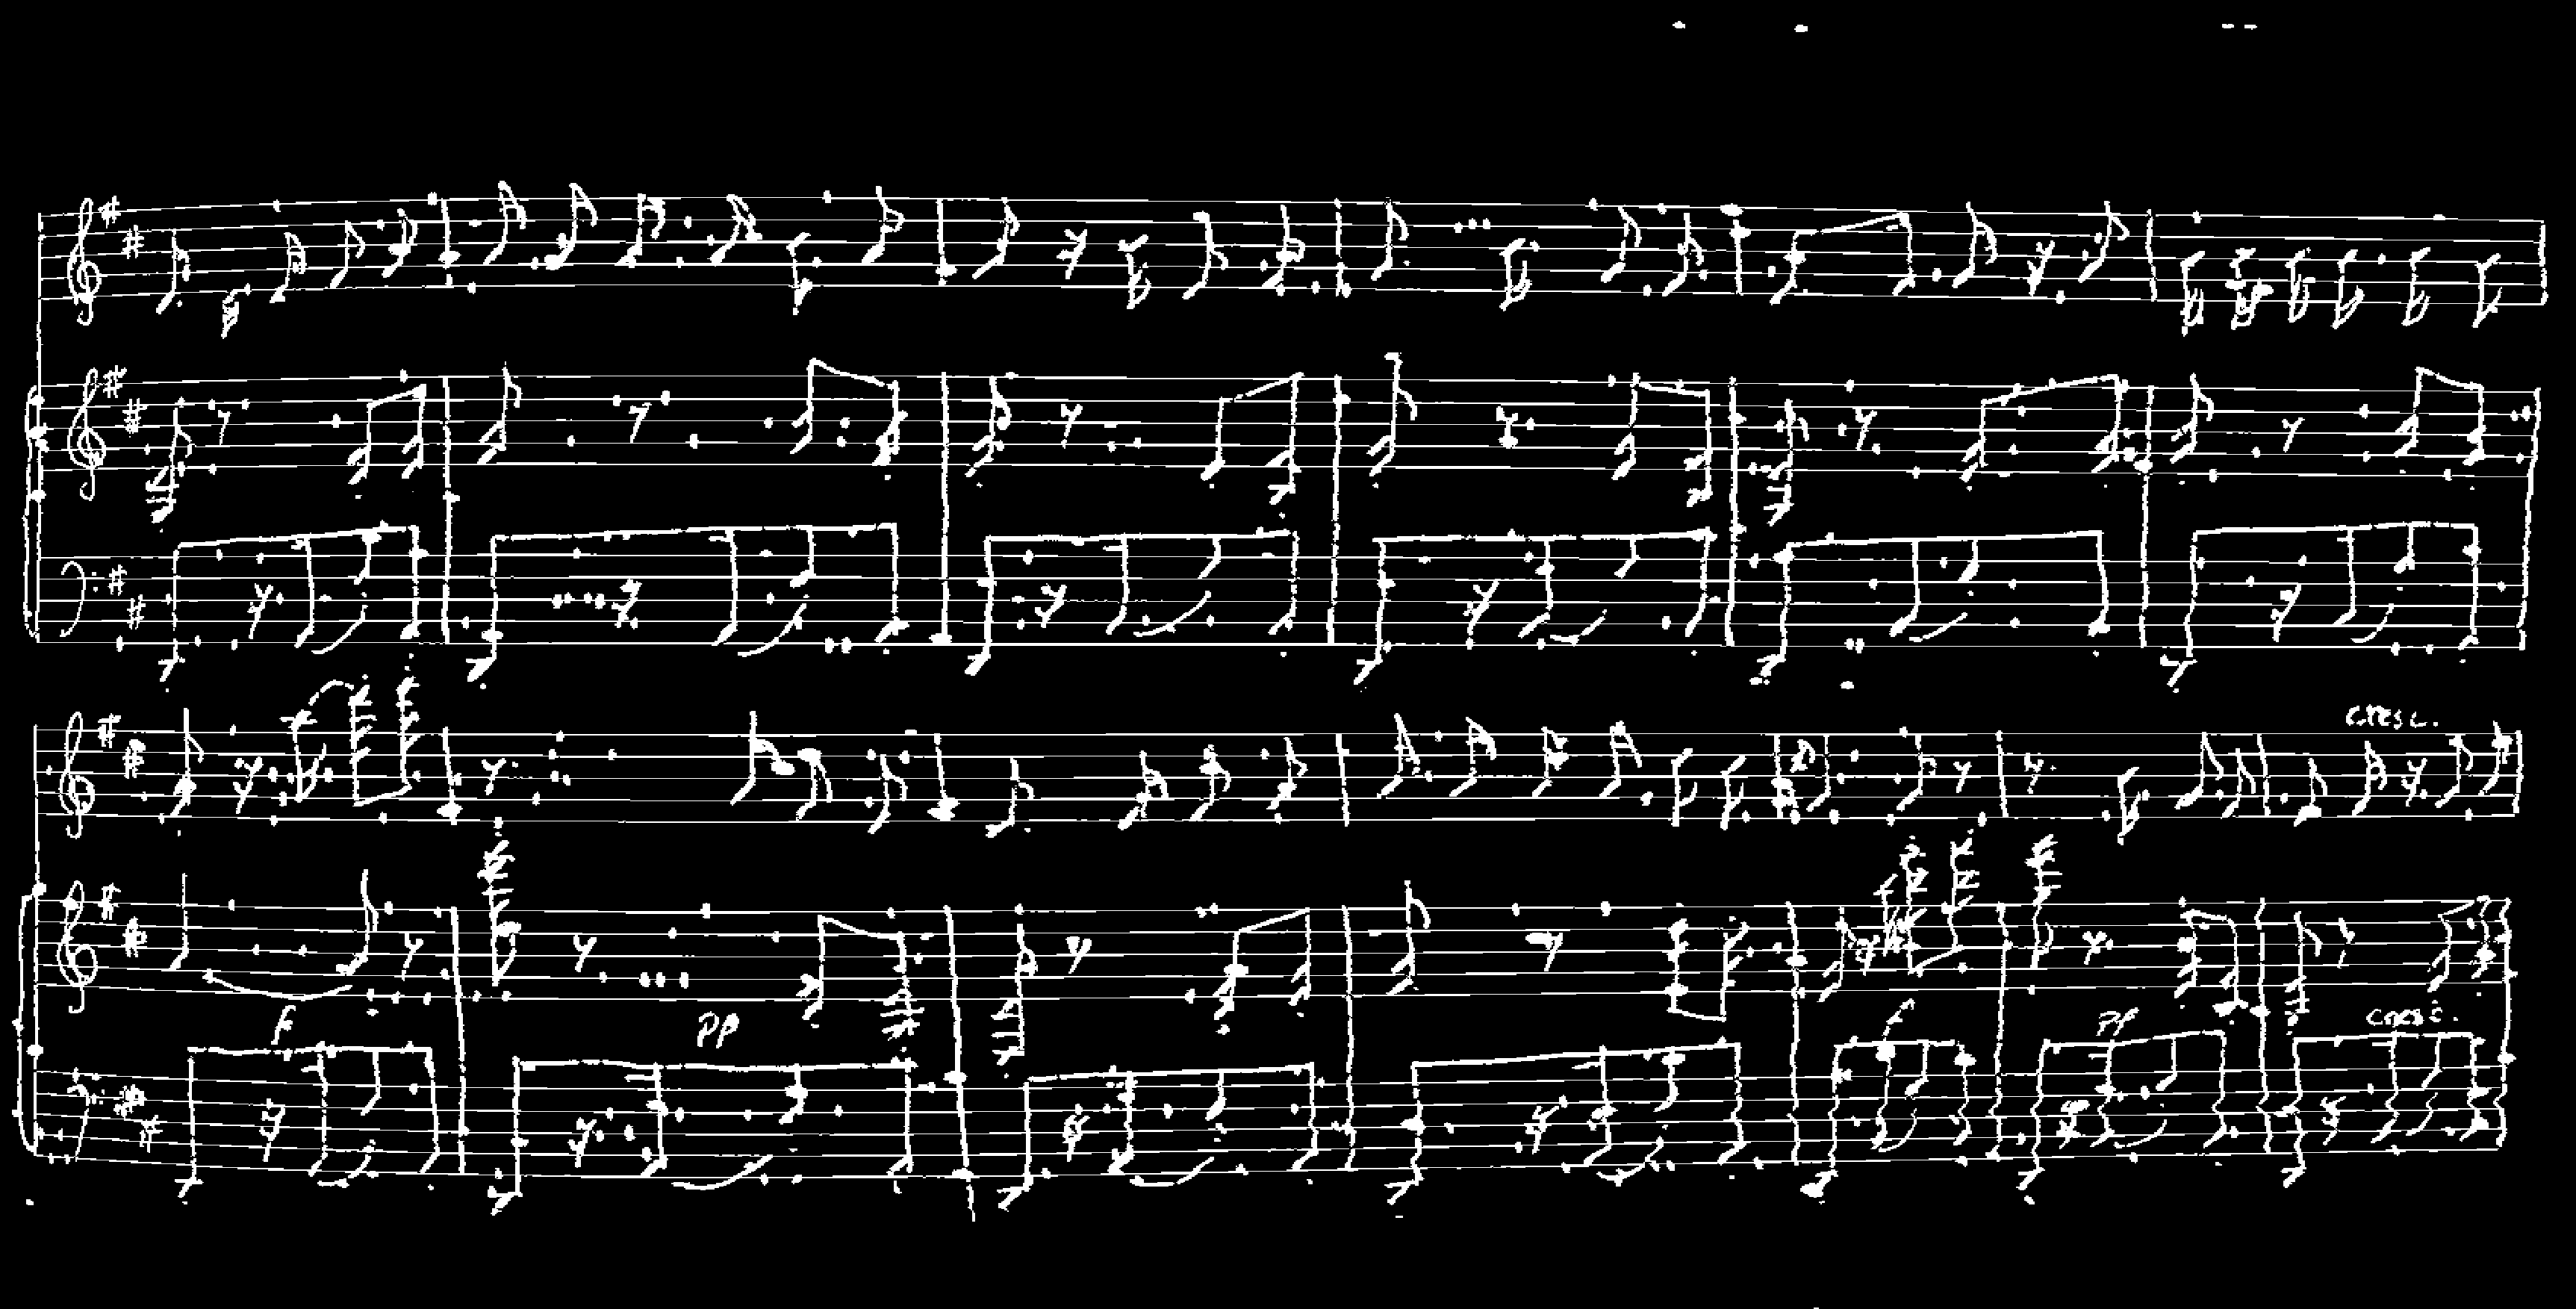 cresc.
f
pp
f
pp
cresc.